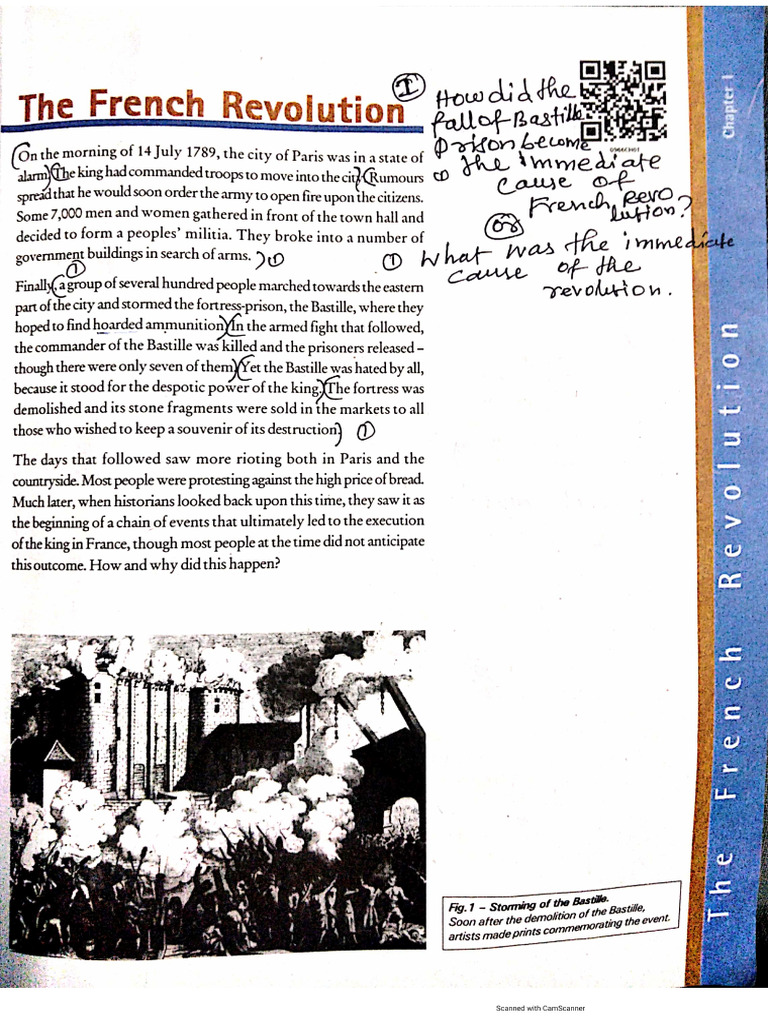 The French Revolution
I
How did the
fall of Bastille
Prison become
① the immediate
cause of
French Revo
lution?
(or)
① What was the immediate
cause of the
revolution.
On the morning of 14 July 1789, the city of Paris was in a state of
alarm. The king had commanded troops to move into the city. Rumours
spread that he would soon order the army to open fire upon the citizens.
Some 7,000 men and women gathered in front of the town hall and
decided to form a peoples' militia. They broke into a number of
government buildings in search of arms. ①
①
Finally, a group of several hundred people marched towards the eastern
part of the city and stormed the fortress-prison, the Bastille, where they
hoped to find hoarded ammunition. In the armed fight that followed,
the commander of the Bastille was killed and the prisoners released –
though there were only seven of them. Yet the Bastille was hated by all,
because it stood for the despotic power of the king. The fortress was
demolished and its stone fragments were sold in the markets to all
those who wished to keep a souvenir of its destruction. ①
The days that followed saw more rioting both in Paris and the
countryside. Most people were protesting against the high price of bread.
Much later, when historians looked back upon this time, they saw it as
the beginning of a chain of events that ultimately led to the execution
of the king in France, though most people at the time did not anticipate
this outcome. How and why did this happen?
Fig.1 – Storming of the Bastille.
Soon after the demolition of the Bastille,
artists made prints commemorating the event.
Chapter I
The French Revolution
Scanned with CamScanner